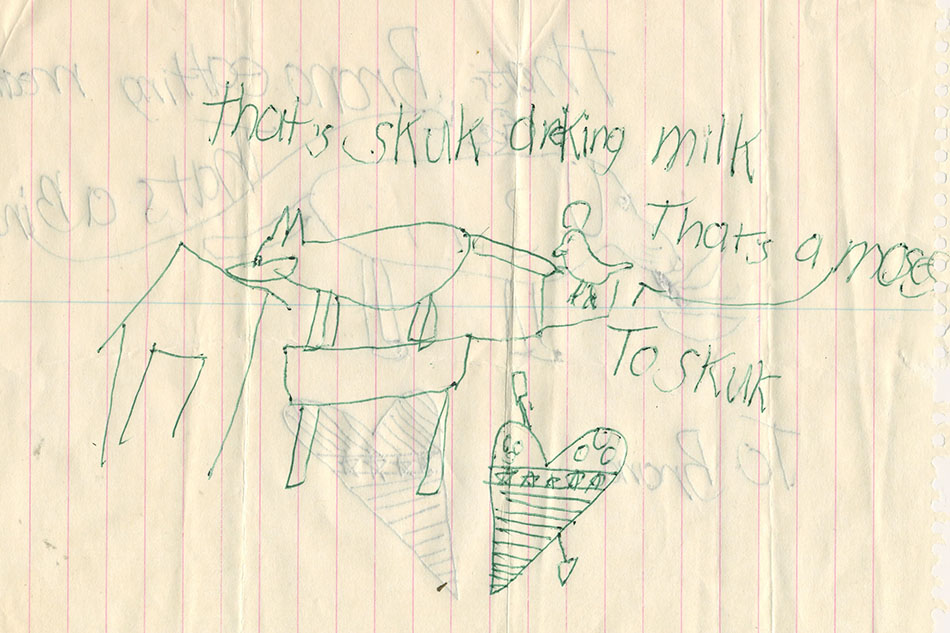 that's skuk dreking milk
That's a mose
To skuk